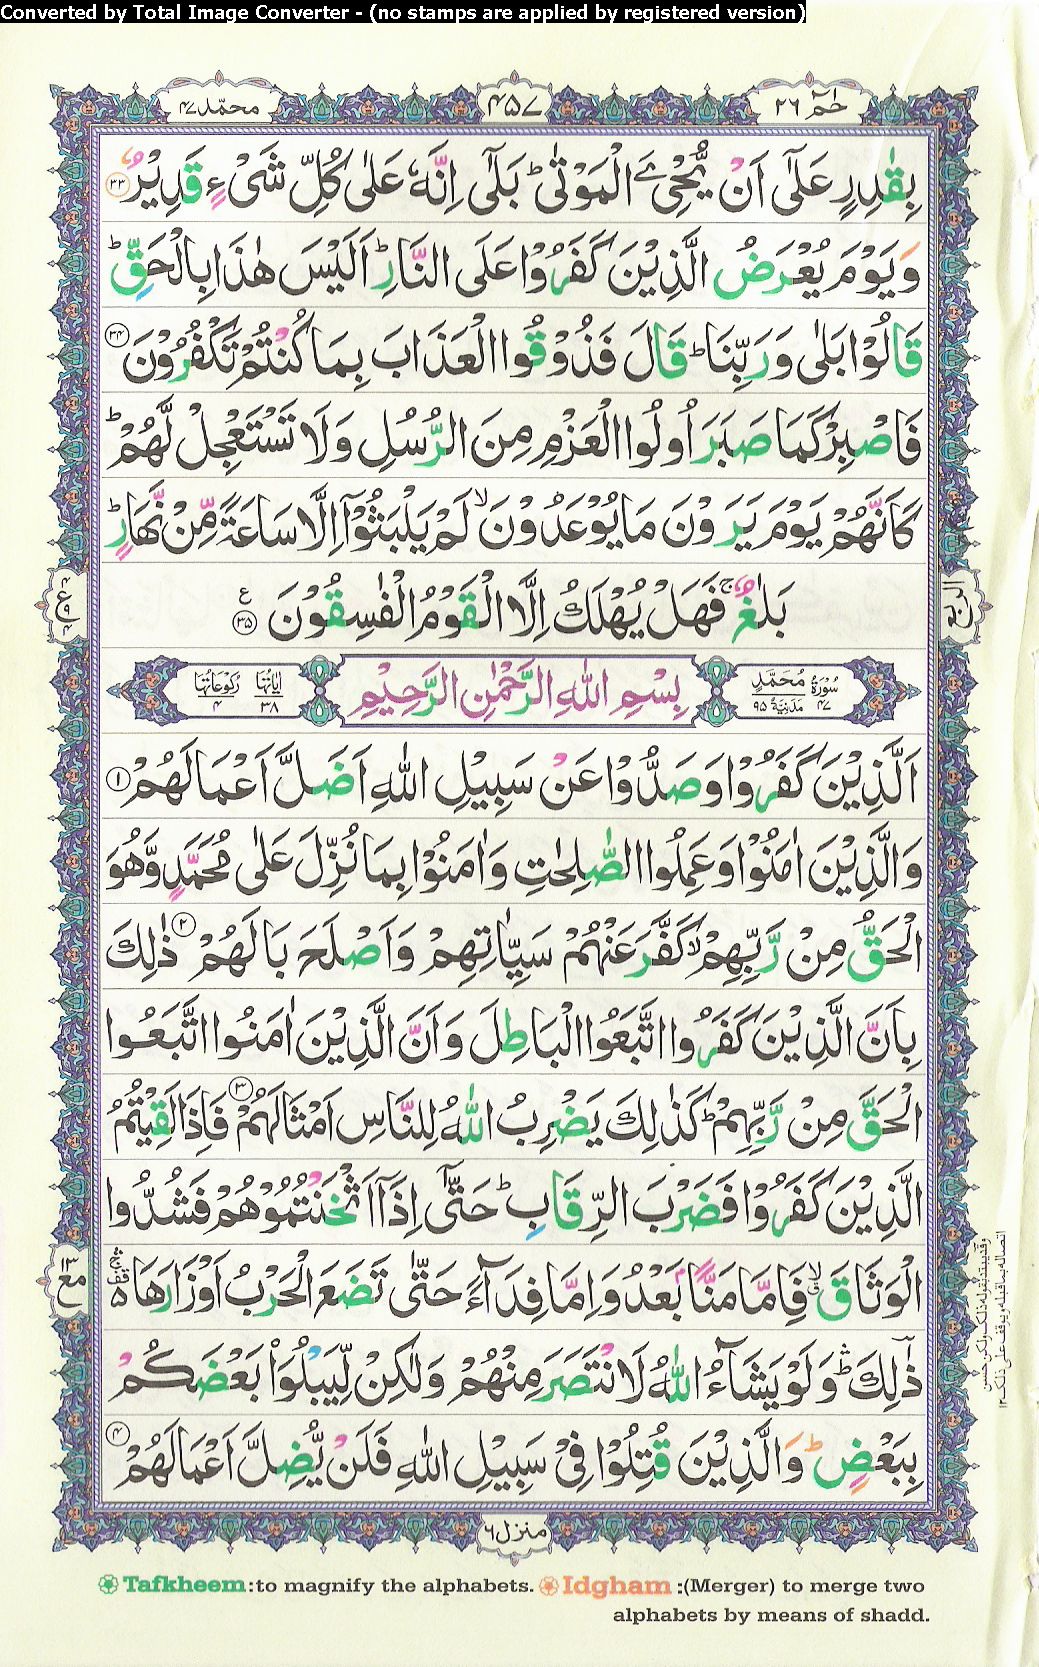 Converted by Total Image Converter - (no stamps are applied by registered version)
حٰمٓ ٢٦
٤٥٧
محمّد ٤٧
بِقٰدِرٍ عَلٰٓى اَنْ يُّحْيِۦَ الْمَوْتٰى ؕ بَلٰٓى اِنَّهٗ عَلٰى كُلِّ شَىْءٍ قَدِيْرٌ ﴿۳۳﴾
وَيَوْمَ يُعْرَضُ الَّذِيْنَ كَفَرُوْا عَلَى النَّارِ ؕ اَلَيْسَ هٰذَا بِالْحَقِّ ؕ
قَالُوْا بَلٰى وَرَبِّنَا ؕ قَالَ فَذُوْقُوا الْعَذَابَ بِمَا كُنْتُمْ تَكْفُرُوْنَ ﴿۳۴﴾
فَاصْبِرْ كَمَا صَبَرَ اُولُوا الْعَزْمِ مِنَ الرُّسُلِ وَلَا تَسْتَعْجِلْ لَّهُمْ ؕ
كَاَنَّهُمْ يَوْمَ يَرَوْنَ مَا يُوْعَدُوْنَ ۙ لَمْ يَلْبَثُوْۤا اِلَّا سَاعَةً مِّنْ نَّهَارٍ ؕ
بَلٰغٌ ۚ فَهَلْ يُهْلَكُ اِلَّا الْقَوْمُ الْفٰسِقُوْنَ ﴿۳۵﴾ ع
سُوْرَةُ مُحَمَّدٍ ٤٧ مَدَنِيَّةٌ ٩٥
بِسْمِ اللّٰهِ الرَّحْمٰنِ الرَّحِيْمِ
اٰيَاتُهَا ٣٨ رُكُوْعَاتُهَا ٤
اَلَّذِيْنَ كَفَرُوْا وَصَدُّوْا عَنْ سَبِيْلِ اللّٰهِ اَضَلَّ اَعْمَالَهُمْ ﴿۱﴾
وَالَّذِيْنَ اٰمَنُوْا وَعَمِلُوا الصّٰلِحٰتِ وَاٰمَنُوْا بِمَا نُزِّلَ عَلٰى مُحَمَّدٍ وَّهُوَ
الْحَقُّ مِنْ رَّبِّهِمْ ۙ كَفَّرَ عَنْهُمْ سَيِّاٰتِهِمْ وَاَصْلَحَ بَالَهُمْ ﴿۲﴾ ذٰلِكَ
بِاَنَّ الَّذِيْنَ كَفَرُوا اتَّبَعُوا الْبَاطِلَ وَاَنَّ الَّذِيْنَ اٰمَنُوا اتَّبَعُوا
الْحَقَّ مِنْ رَّبِّهِمْ ؕ كَذٰلِكَ يَضْرِبُ اللّٰهُ لِلنَّاسِ اَمْثَالَهُمْ ﴿۳﴾ فَاِذَا لَقِيْتُمُ
الَّذِيْنَ كَفَرُوْا فَضَرْبَ الرِّقَابِ ؕ حَتّٰٓى اِذَاۤ اَثْخَنْتُمُوْهُمْ فَشُدُّوا
الْوَثَاقَ ۙ فَاِمَّا مَنًّۢا بَعْدُ وَاِمَّا فِدَآءً حَتّٰى تَضَعَ الْحَرْبُ اَوْزَارَهَا
ذٰٓلِكَ ۛؕ وَلَوْ يَشَآءُ اللّٰهُ لَانْتَصَرَ مِنْهُمْ وَلٰكِنْ لِّيَبْلُوَا۟ بَعْضَكُمْ
بِبَعْضٍ ؕ وَالَّذِيْنَ قُتِلُوْا فِىْ سَبِيْلِ اللّٰهِ فَلَنْ يُّضِلَّ اَعْمَالَهُمْ ﴿۴﴾
منزل ٦
Tafkheem: to magnify the alphabets. Idgham :(Merger) to merge two
alphabets by means of shadd.